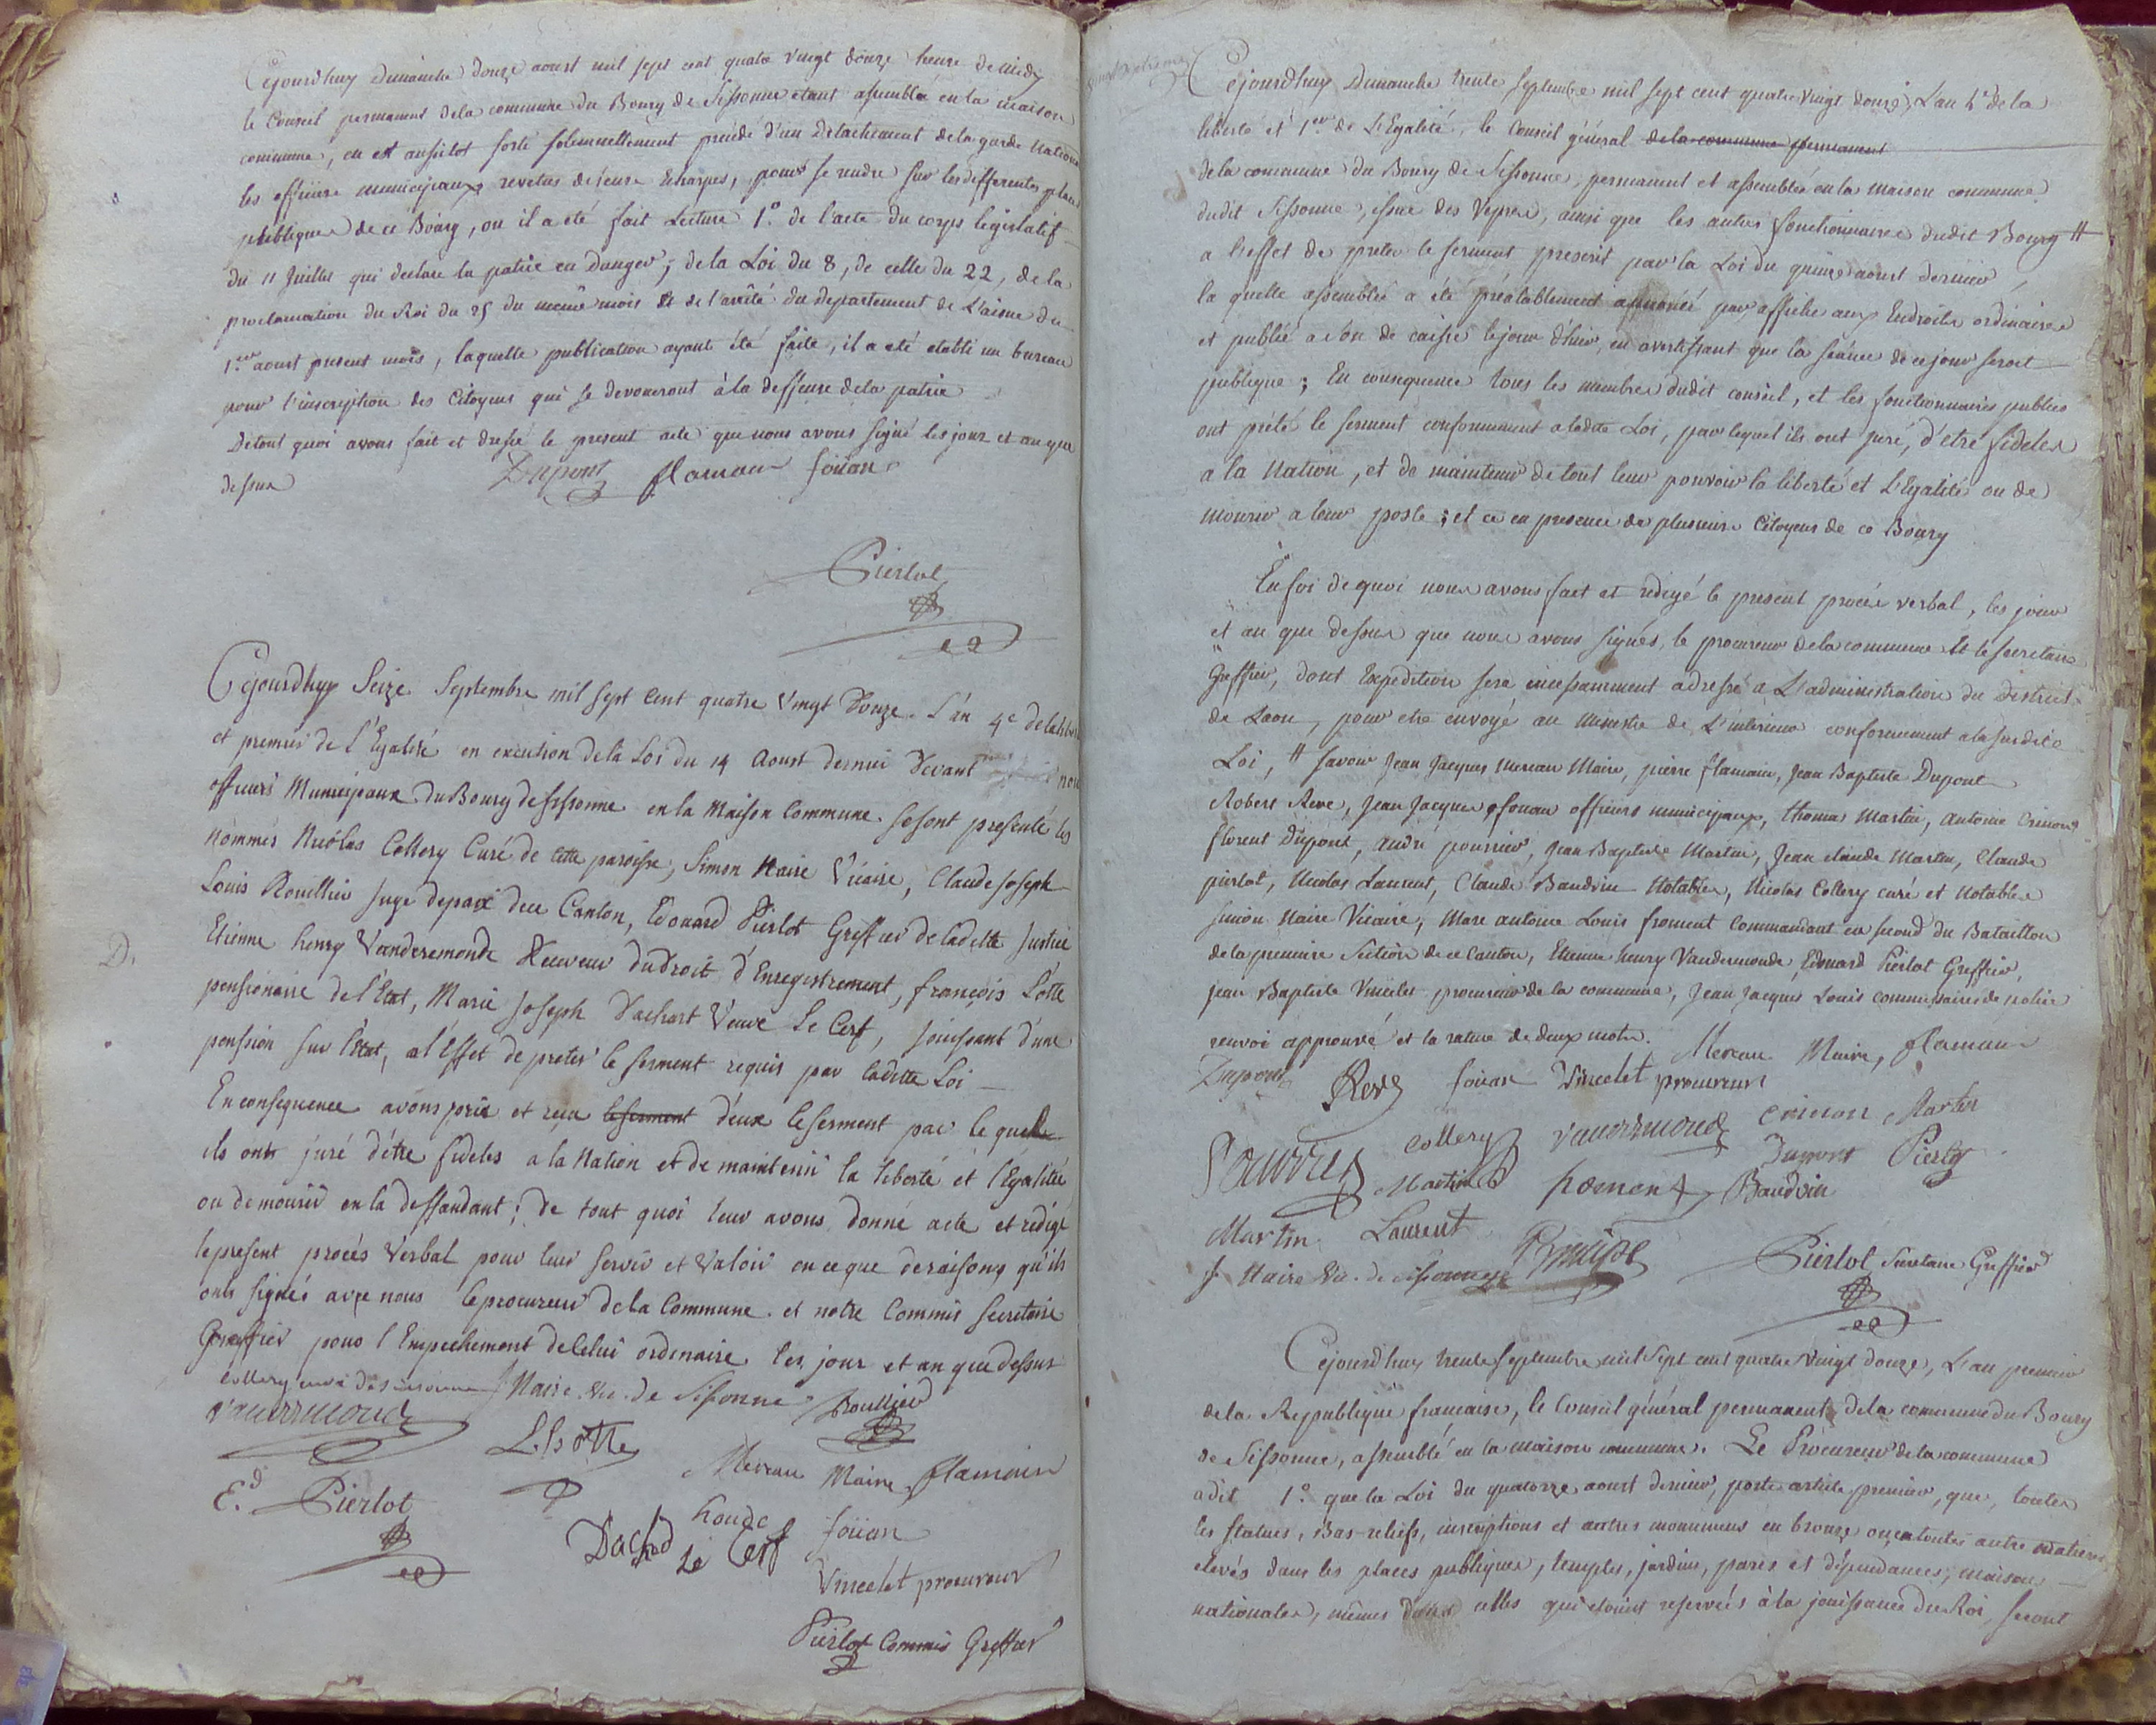 Cejourdhuy Dimanche douze aoust mil sept cent quatre vingt douze heure de midy
le Conseil permanent dela commune du Bourg de Sissonne etant assemblé en la maison
commune, en est aussitot sorti solemnellement précédé d'un Detachement dela garde nationa
les officiers municipaux revetus de leurs Echarpes, pour se rendre sur les differentes places
publiques de ce Bourg, ou il a été fait Lecture 1.º de l'acte du corps legislatif
du 11 Juillet qui declare la patrie en Danger; de la Loi du 8, de celle du 22, de la
proclamation du Roi du 25 du même mois et de l'arrêté du departement de L'aisne du
1.er aoust present mois, laquelle publication ayant été faite, il a eté etabli un bureau
pour l'inscription des Citoyens qui se devoueront à la deffense dela patrie
De tout quoi avons fait et dressé le present acte que nous avons signé les jour et an que
dessus
Dupont flamain foüan
Pierlot
Cejourdhuy Seize Septembre mil sept Cent quatre Vingt Douze. L'an 4e de la liber
et premier de l'Egalité en execution de la Loi du 14 Aoust dernier Devant nous
officiers Municipaux Du Bourg de Sissonne en la Maison Commune. se sont presenté les
nommés Nicolas Collery Curé de cette paroisse, Simon Naire Vicaire, Claude Joseph
Louis Rouillier Juge de paix de ce Canton, Edouard Pierlot Greffier de ladette Justice
Etienne henry Vanderemonde Receveur du Droit d'Enregistrement, françois Lotte
pensionaire de l'Etat, Marie Joseph Dachart Veuve Le Cerf, Jouissant d'une
pension sur l'Etat, a l'Effet de preter le serment requis par ladette Loi
En consequence avons pris et reçu le serment d'eux le serment par le quel
ils ont juré d'être fideles a la Nation et de maintenir la liberté et l'Egalité
ou de mourir en la deffandant; De tout quoi leur avons donné acte et redigé
le present procès Verbal pour leur servir et Valoir en ce que de raisons qu'ils
ont signés avec nous le procureur de la Commune. et notre Commis Secretaire
Greffier pour l'Empechement de Celui ordinaire les jour et an que dessus
Collery curé de sissonne S. Naire Vic. de Sissonne Rouillier
Vanderemonde
L.hotte
Mereau Maire flamain
E.d Pierlot
Dachard Le Cerf
foüan
Vincelet procureur
Pierlot Commis Greffier
D.
Cejourdhuy Dimanche trente Septembre mil sept cent quatre vingt douze, L'an 4e de la
liberté et 1er de L'Egalité, le Conseil général de la commune permanent
de la commune du Bourg de Sissonne, permanent et assemblé en la maison commune
dudit Sissonne, issue des Vepres, ainsi que les autres fonctionnaires dudit Bourg #
a l'effet de preter le serment prescrit par la Loi du quinze aoust dernier,
la quelle assemblée a été préalablement annoncé par affiche aux Endroits ordinaires
et publié a son de caisse le jour d'hier, en avertissant que la séance de ce jour seroit
publique; En consequence tous les membres dudit conseil, et les fonctionnaires publics
ont prété le serment conformement a ladite Loi, par lequel ils ont juré, d'etre fideles
a la Nation, et de maintenir de tout leur pouvoir la liberté et L'Egalité ou de
mourir a leur poste; et ce en presence de plusieurs Citoyens de ce Bourg
En foi de quoi nous avons fait et redigé le present procès verbal, les jour
et an que dessus que nous avons signés, le procureur dela commune et le secretaire
Greffier, dont Expedition sera incessamment adressé a L'administration du District
de Laon, pour etre envoyé au Ministre de L'interieur conformement a la susdite
Loi, # savoir Jean Jacques Mereau Maire, pierre flamain, Jean Baptiste Dupont
Robert Reve, Jean Jacques foüan officiers municipaux, thomas Martin, antoine Crinon
florent Dupont, andré pourrier, Jean Baptiste Martin, Jean claude Martin, Claude
pierlot, Nicolas Laurent, Claude Baudvin Notables, Nicolas Collery curé et Notables
simon Naire Vicaire, Marc antoine Louis froment Commandant en second du Bataillon
de la premiere Section de ce Canton, Etienne henry Vandermonde Edouard Pierlot Greffier,
jean Baptiste Vincelet procureur de la commune, Jean Jacques Louis Commissaires de police
renvoi approuvé et la rature de deux mots. Mereau Maire, flamain
Dupont Reve foüan Vincelet procureur
Pourrier Collery Vanderemonde Crinon Martin
Martin froment Baudvin Dupont Pierlot
Martin Laurent
S. Naire Vic. de sissonne Pierlot Secretaire Greffier
Cejourd'huy trente septembre mil sept cent quatre vingt douze, L'an premier
de la Republique francaise, le Conseil général permanent de la commune du Bourg
de Sissonne, assemblé en la maison commune. Le Procureur de la commune
a dit 1.º que la Loi du quatorze aoust dernier, porte article premier, que, toutes
les statues, Bas-reliefs, inscriptions et autres monumens en bronze ou en toutes autre matieres
elevés dans les places publiques, temples, jardins, parcs et dépendances, maisons
nationales, mêmes dans celles qui etoient reservées à la jouissance du Roi, seront